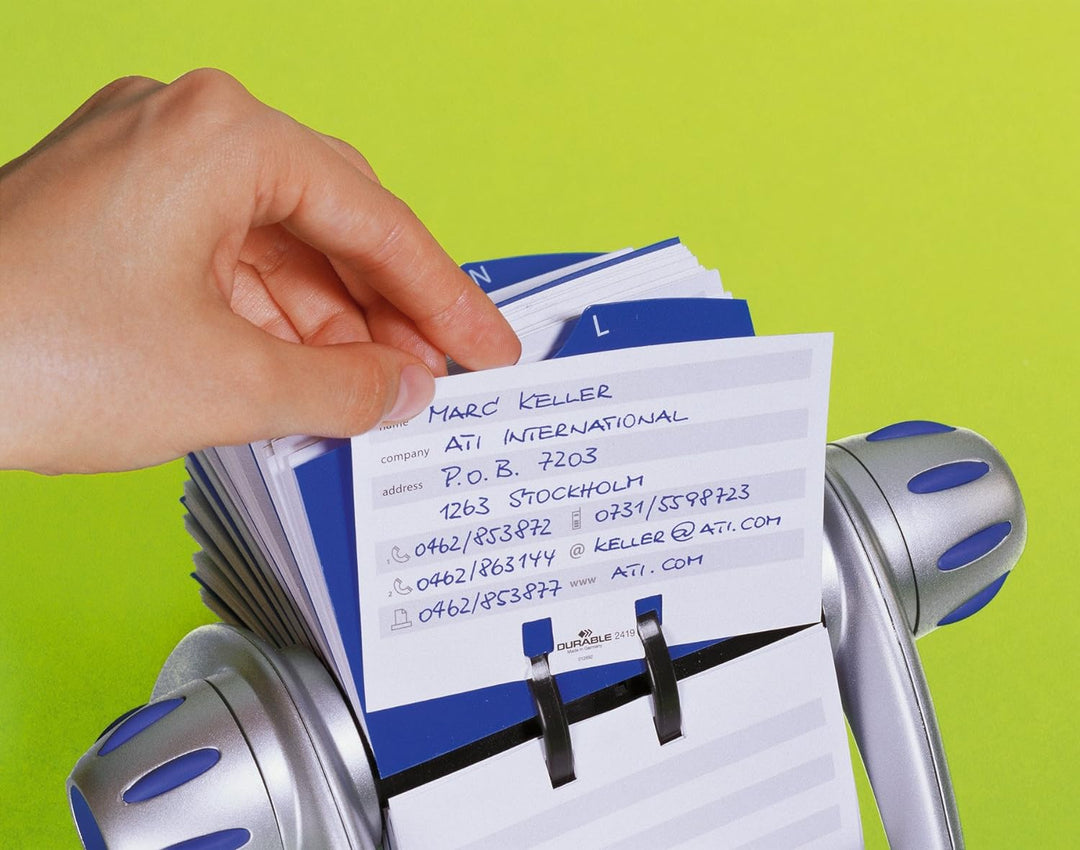 N
L
name MARC KELLER
company ATI INTERNATIONAL
address P.O.B. 7203
1263 STOCKHOLM
1 0462/853872 0731/5598723
2 0462/863144 @ KELLER@ATI.COM
0462/853877 www ATI.COM
DURABLE 2419
Made in Germany